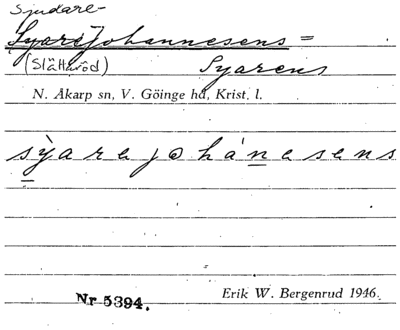 Sjudare-
Syarejohannesens =
(Slättaröd) Syarens
N. Åkarp sn, V. Göinge hd, Krist. l.
sỳarejohánesens
Nr 5394. Erik W. Bergenrud 1946.